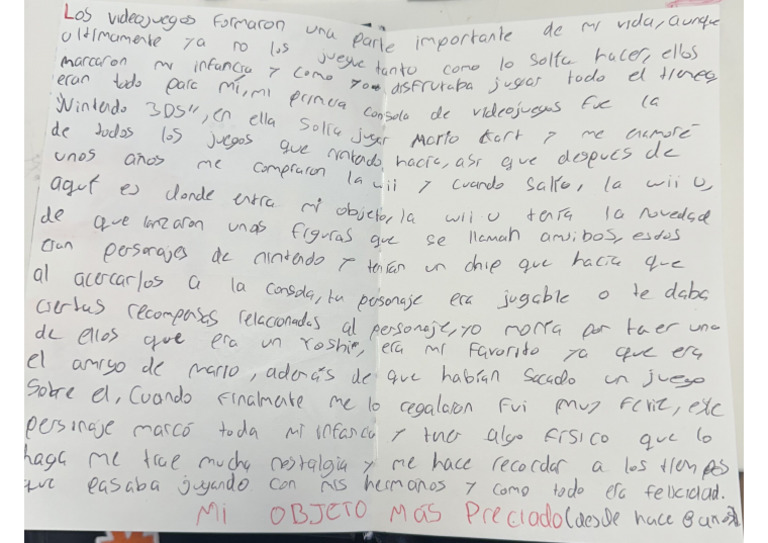 Los videojuegos formaron una parte importante de mi vida, aunque
ultimamente ya no los juegue tanto como lo solia hacer, ellos
marcaron mi infancia y como yo disfrutaba jugar todo el tiempo
eran todo para mi, mi primera consola de videojuegos fue la
"Nintendo 3DS", en ella solia jugar Mario Kart y me enamoré
de todos los juegos que nintendo hacia, asi que despues de
unos años me compraron la wii y cuando salio, la wii U,
aquí es donde entra mi objeto, la wii U tenia la novedad
de que lanzaron unas figuras que se llaman amiibos, estos
eran personajes de nintendo y tenian un chip que hacia que
al acercarlos a la consola, tu personaje era jugable o te daba
ciertas recompensas relacionadas al personaje, yo moria por tener uno
de ellos que era un Yoshi, era mi favorito ya que era
el amigo de Mario, además de que habían sacado un juego
sobre el, Cuando finalmente me lo regalaron fui muy feliz, este
personaje marcó toda mi infancia y tener algo físico que lo
haga me trae mucha nostalgia y me hace recordar a los tiempos
que pasaba jugando con mis hermanos y como todo era felicidad.
Mi OBJETO MAS Preciado (desde hace 8 años)